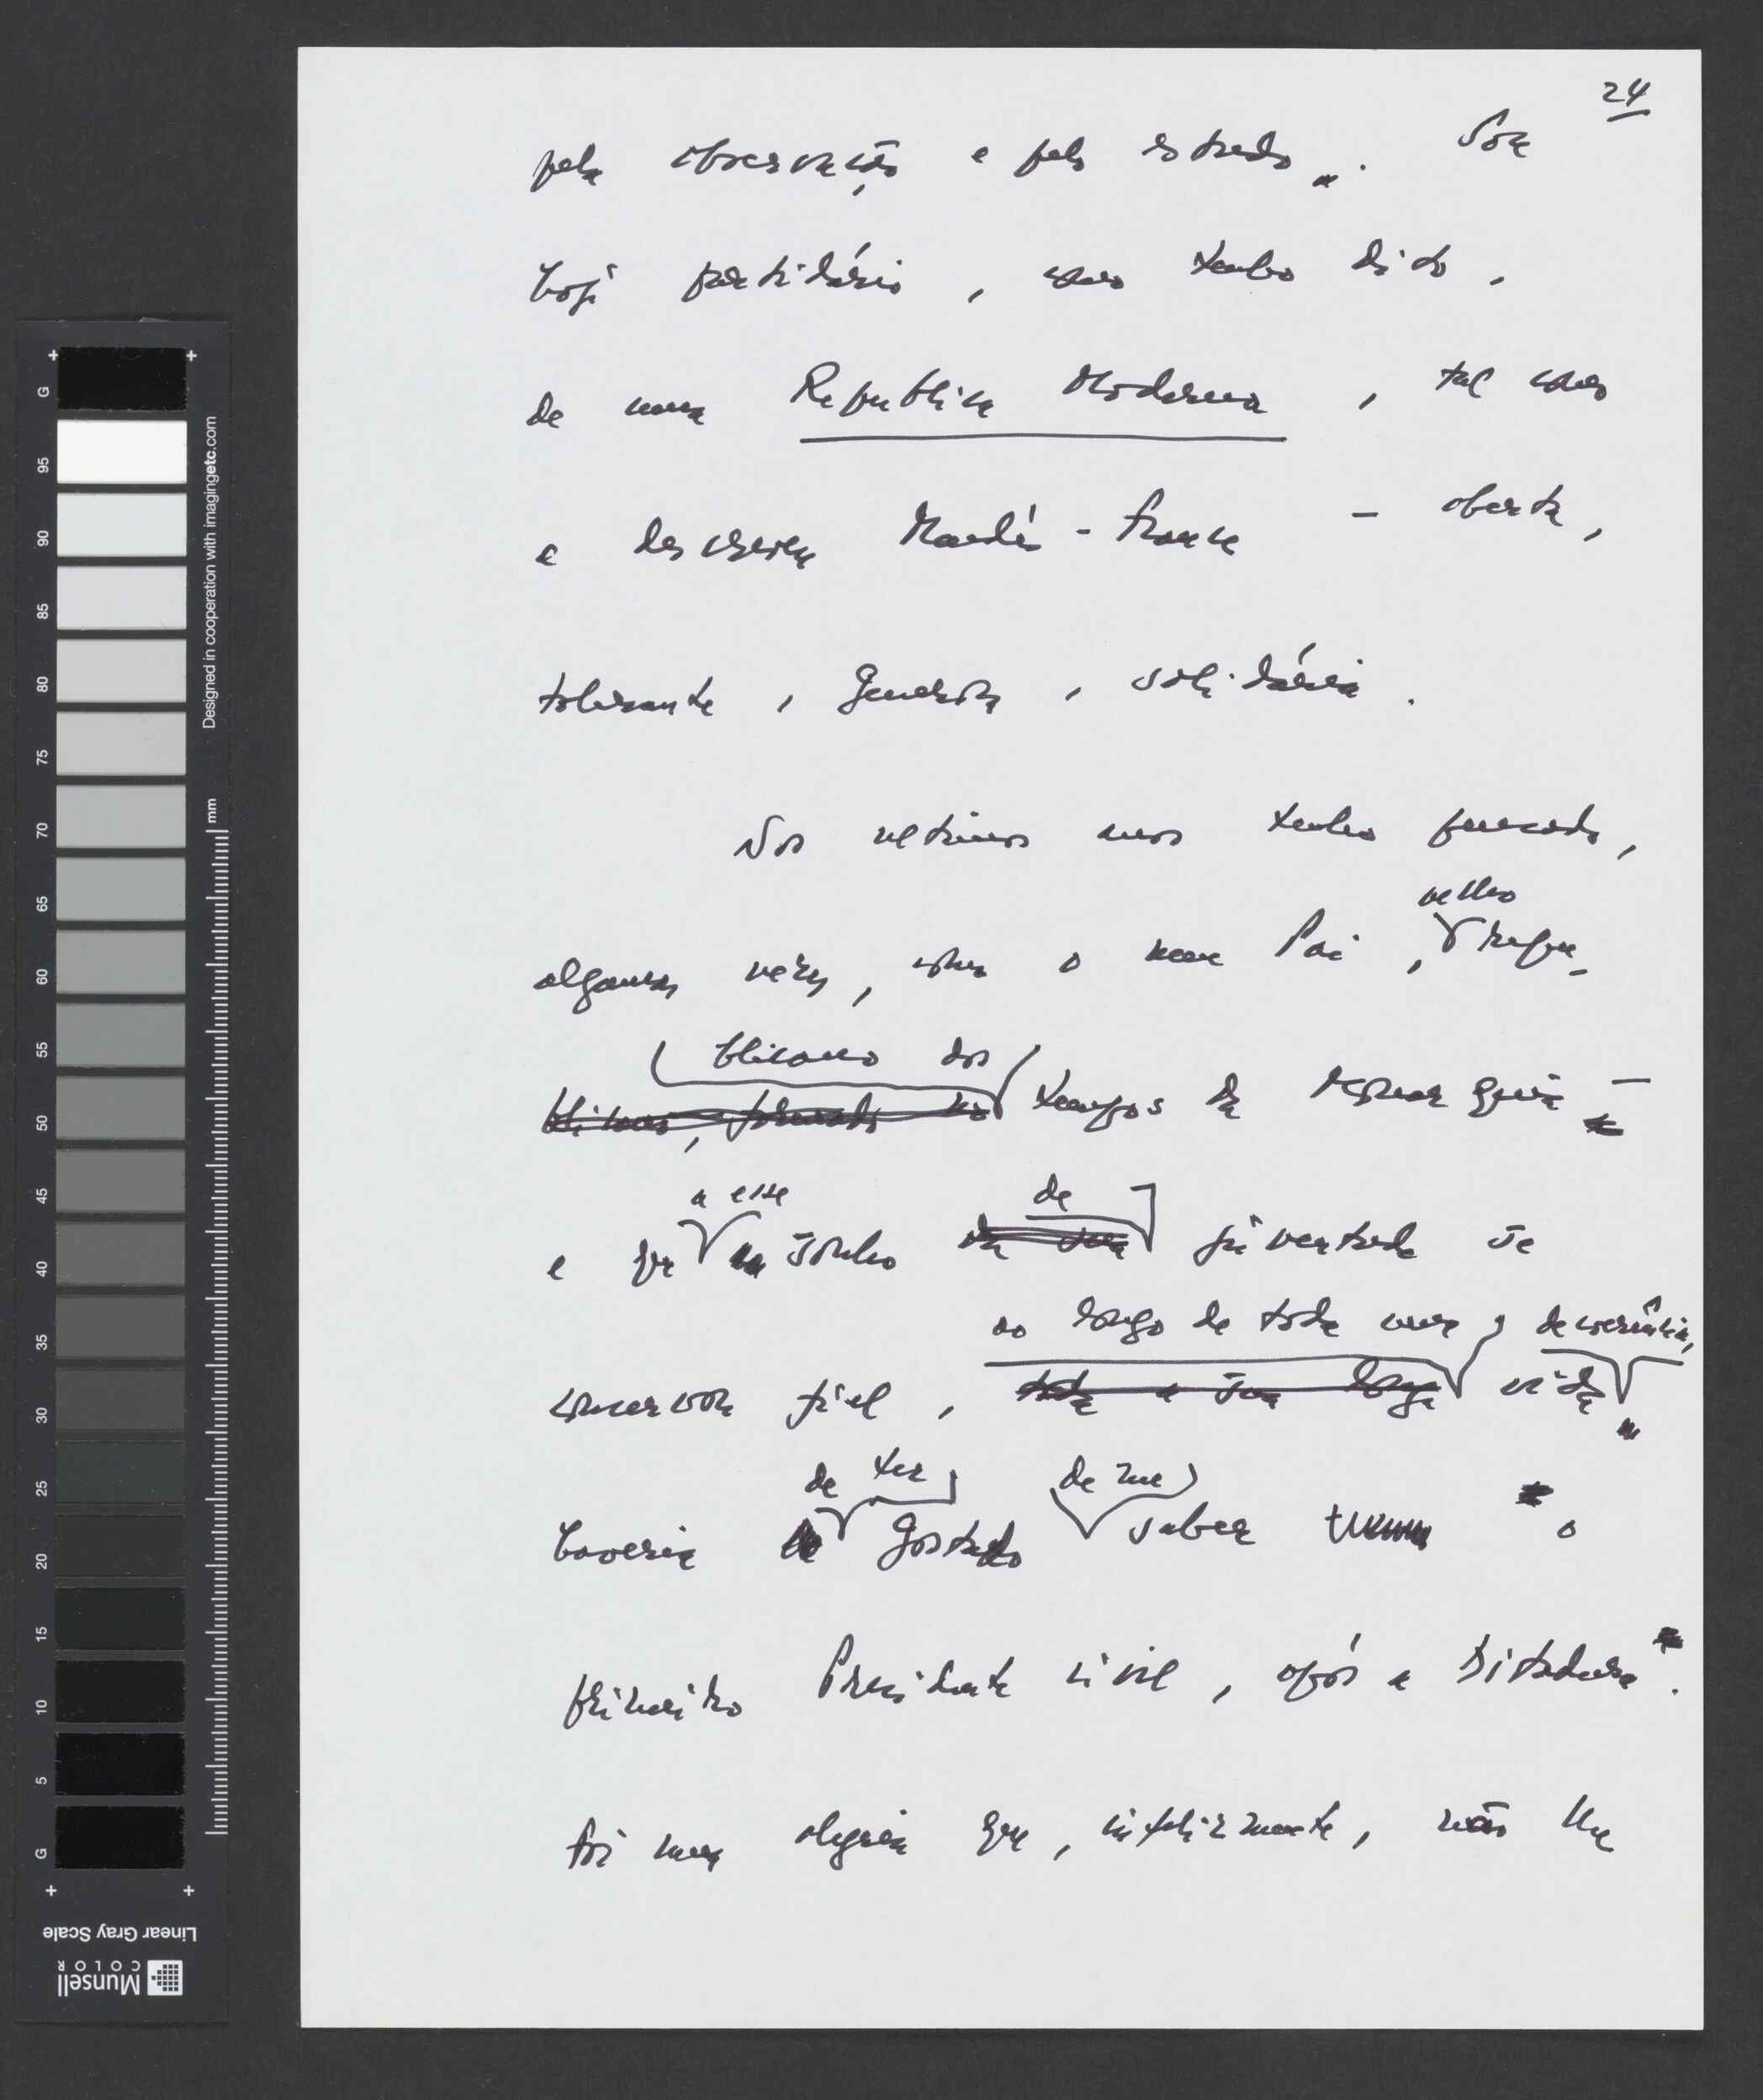 24
pela observação e pelo estudo. Sou
hoje partidário, como tenho dito,
de uma República Moderna, tal como
a descreveu Mendès-France – aberta,
tolerante, generosa, solidária.
Nos ultimos anos tenho pensado,
velho
algumas vezes, como o meu Pai, repu-
blicano dos
blicano, formado nos tempos da Monarquia –
a esse de
e que sonho da sua juventude se
ao longo de toda uma , decência,
conservou fiel, toda a sua longa vida
de ter de me
haveria gostado saber o
primeiro Presidente civil, após a Ditadura.
Foi uma alegria que, infelizmente, não lhe
Designed in cooperation with imagingetc.com
mm
G 95 90 85 80 75 70 65 60 55 50 45 40 35 30 25 20 15 10 5 G
Linear Gray Scale
Munsell
COLOR